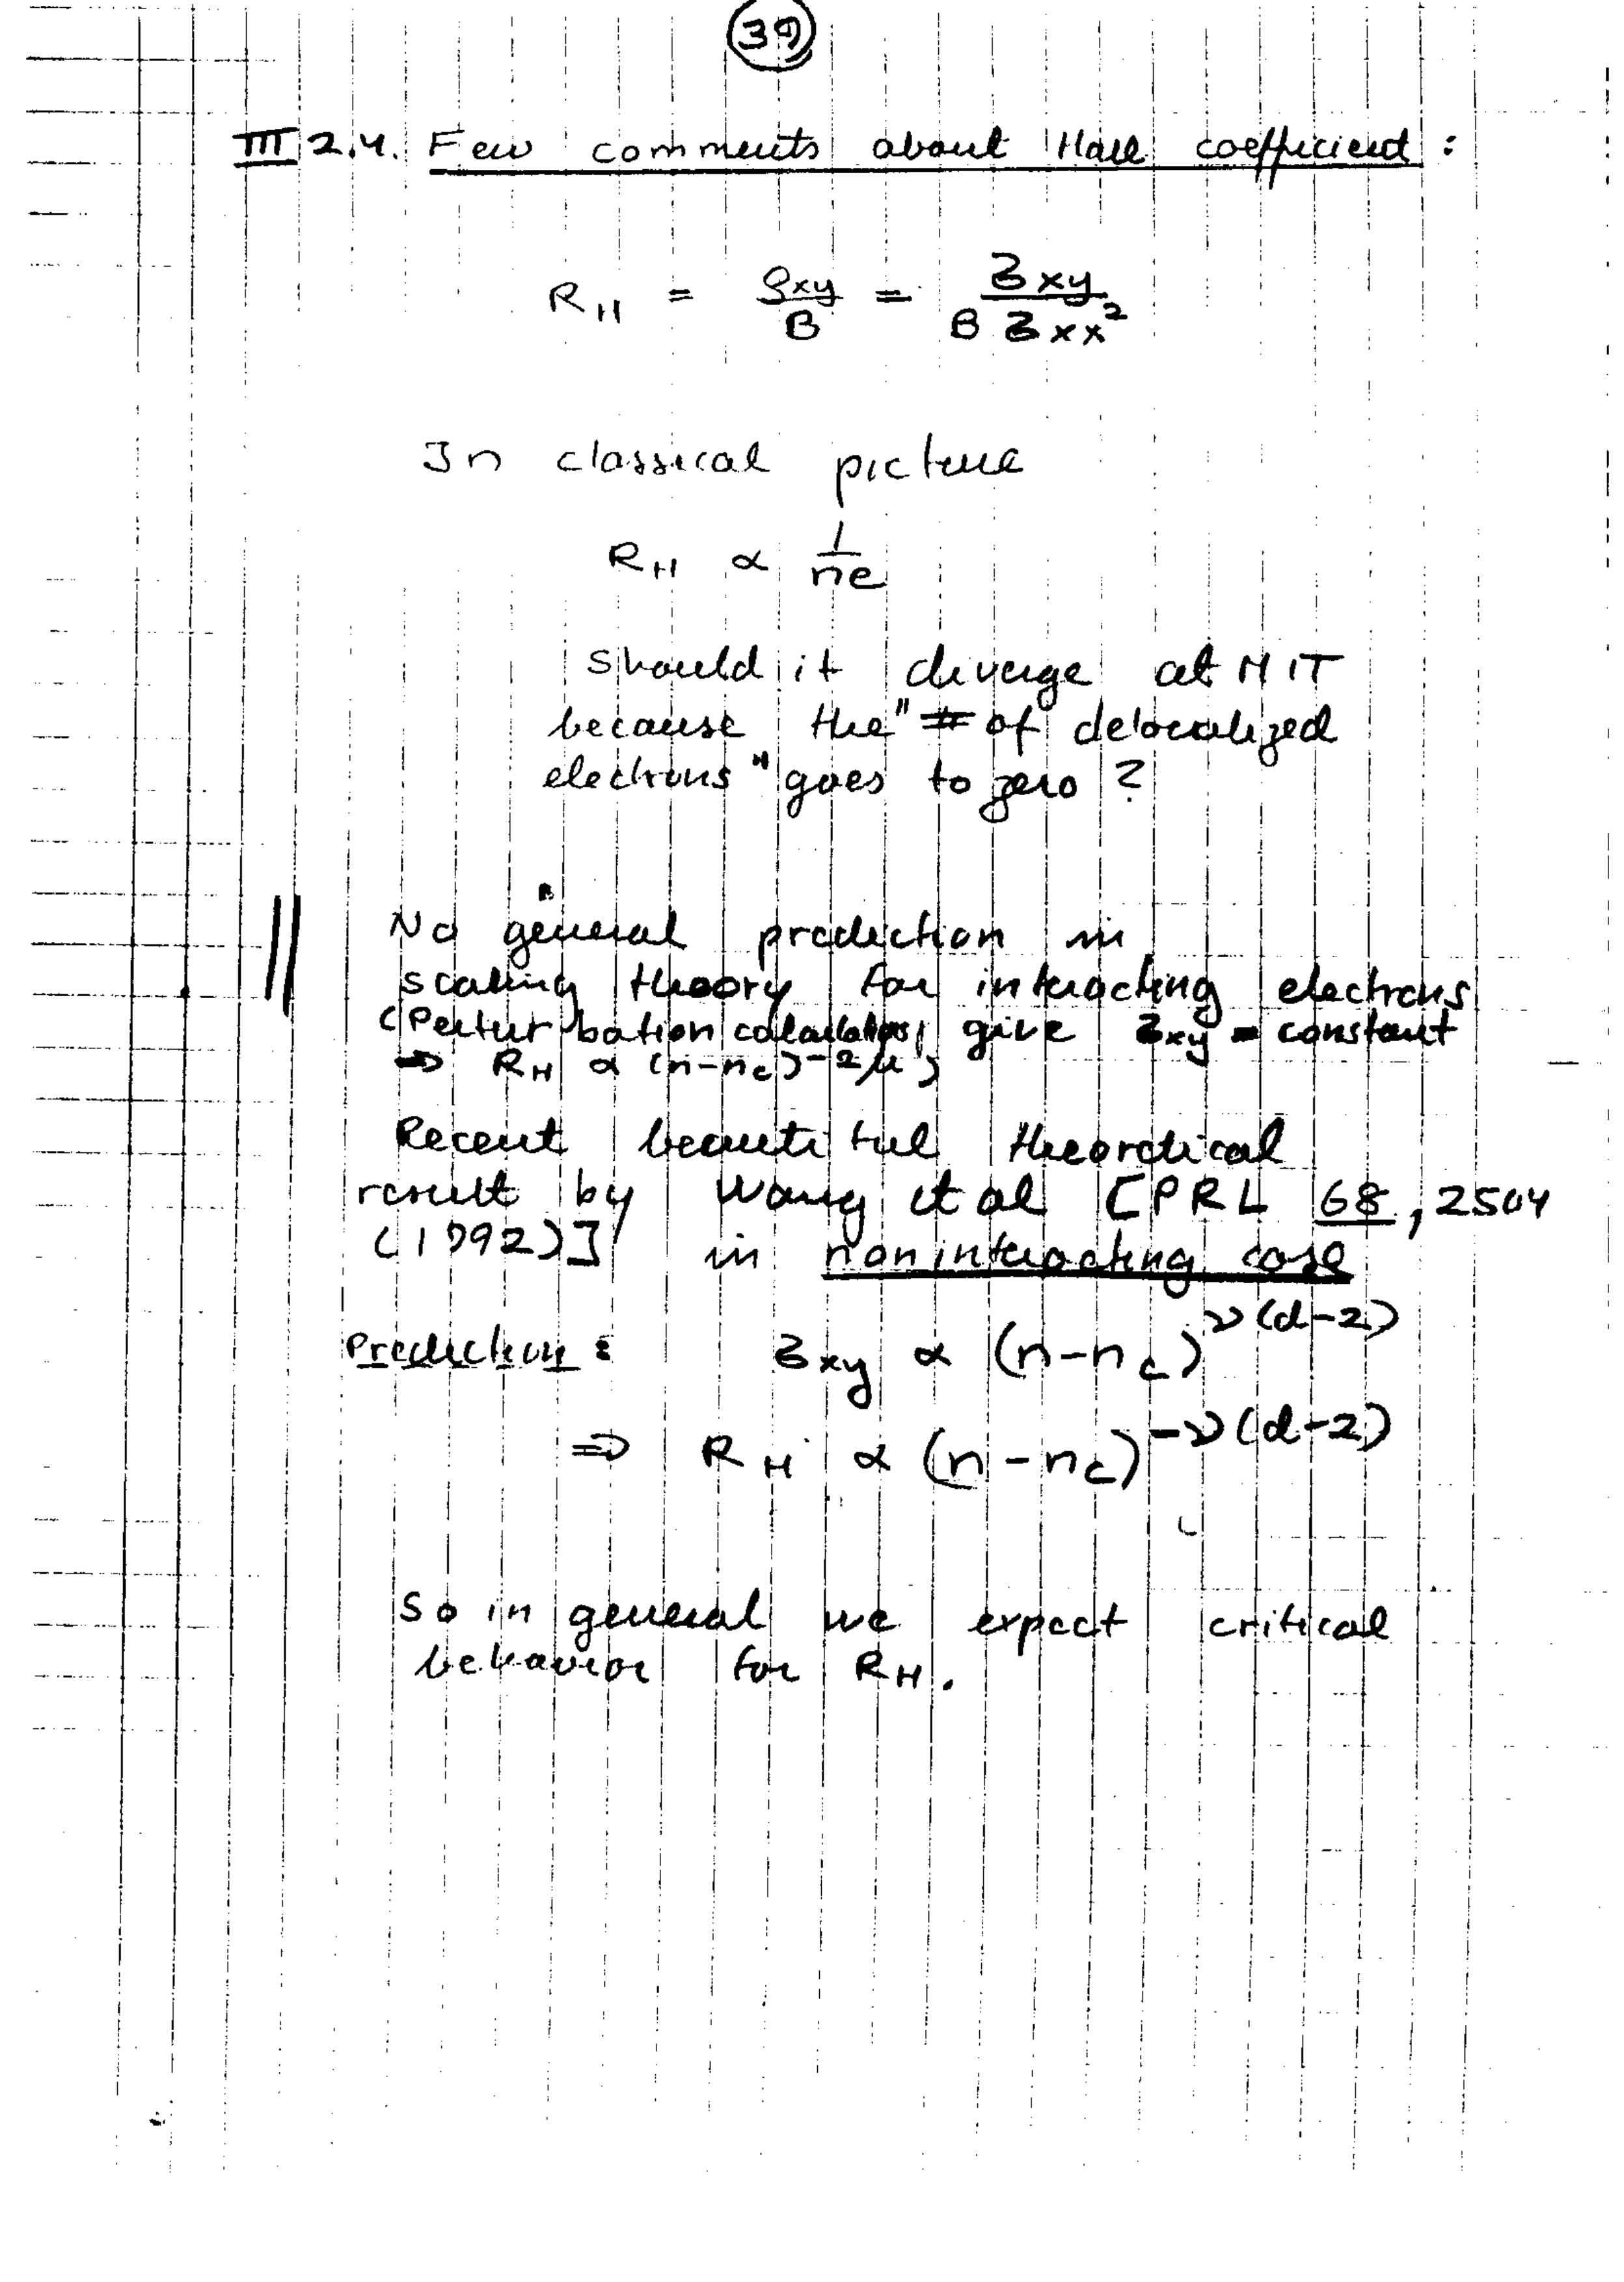 39
III 2.4. Few comments about Hall coefficient :
R_H = ρxy / B = σxy / B σxx²
In classical picture
R_H ∝ 1 / ne
Should it diverge at MIT
because the "# of delocalized
electrons" goes to zero ?
No general prediction in
scaling theory for interacting electrons
(Perturbation calculations give σxy = constant
⇒ R_H ∝ (n-n_c)^-2μ)
Recent beautiful theoretical
result by Wang et al [PRL 68, 2504
(1992)] in noninteracting case
Prediction : σxy ∝ (n-n_c)^ν(d-2)
⇒ R_H ∝ (n-n_c)^-ν(d-2)
So in general we expect critical
behavior for R_H.